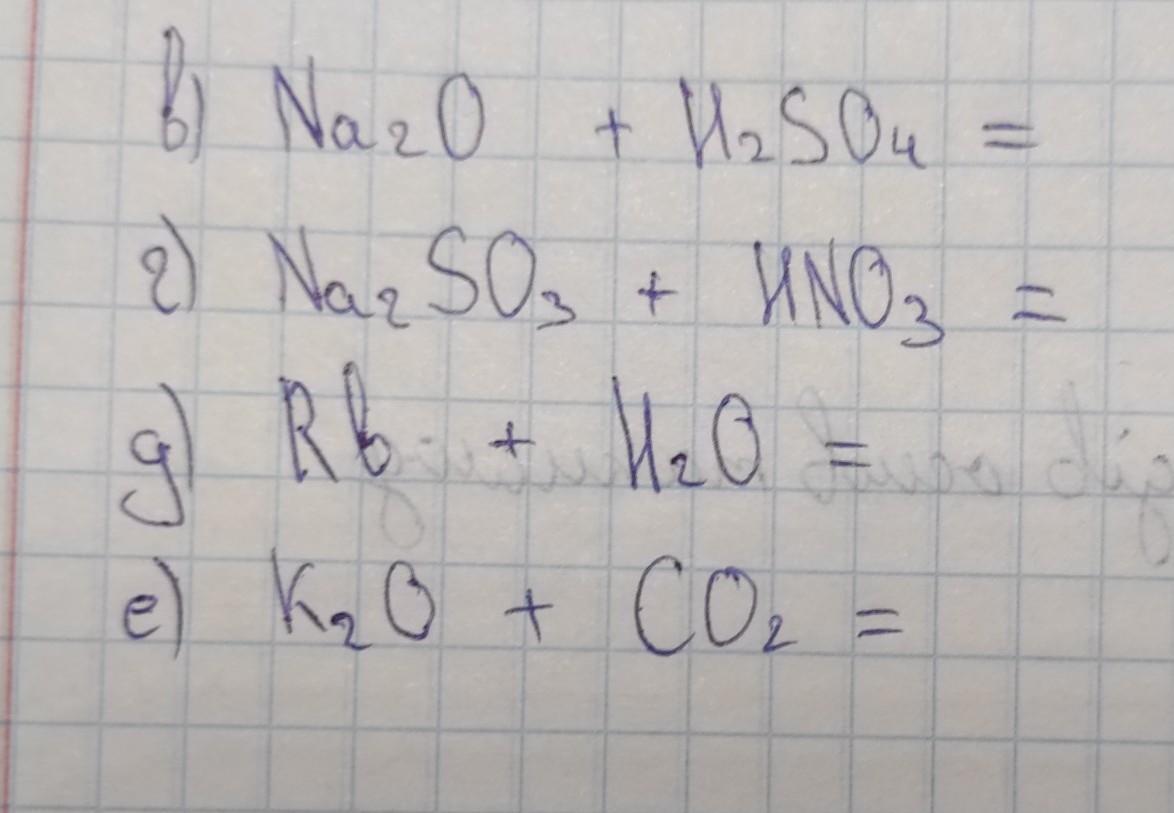 в) Na₂O + H₂SO₄ =
г) Na₂SO₃ + HNO₃ =
д) Rb + H₂O =
е) K₂O + CO₂ =